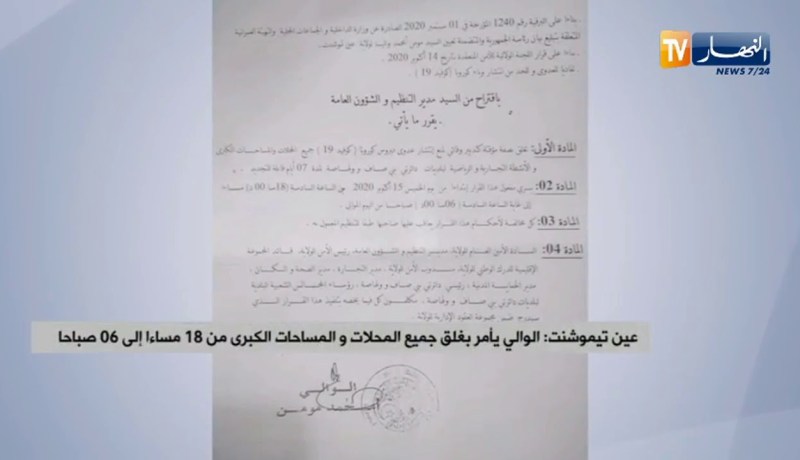 بناءا على البرقية رقم 1240 المؤرخة في 01 سبتمبر 2020 الصادرة عن وزارة الداخلية و الجماعات المحلية والتهيئة العمرانية
المتعلقة بتبليغ بيان رئاسة الجمهورية والمتضمنة تعيين السيد مومن أمحمد واليا لولاية عين تموشنت.
بناءا على قرار اللجنة الولائية للأمن المنعقدة بتاريخ 14 أكتوبر 2020.
تفاديا للعدوى و للحد من انتشار وباء كورونا (كوفيد 19).
النهار TV
NEWS 7/24
باقتراح من السيد مدير التنظيم و الشؤون العامة
. يقرر ما يأتي.
المادة الأولى: تغلق بصفة مؤقتة كتدبير وقائي لمنع إنتشار عدوى فيروس كورونا (كوفيد 19) جميع المحلات والمساحات الكبرى
و الأنشطة التجارية و الرياضية لبلديات دائرتي بني صاف و ولهاصة لمدة 07 أيام قابلة للتجديد
المادة 02: يسري مفعول هذا القرار إبتداءا من يوم الخميس 15 أكتوبر 2020 من الساعة السادسة (18سا 00 د) مساء
إلى غاية الساعة السادسة (06سا 00د) صباحا من اليوم الموالي.
المادة 03: كل مخالفة لأحكام هذا القرار يعاقب عليها صاحبها طبقا للتنظيم المعمول به.
المادة 04: السادة الأمين العام للولاية، مدير التنظيم و الشؤون العامة، رئيس الأمن الولاية، قائد المجموعة
الإقليمية للدرك الوطني للولاية، مندوب الأمن للولاية، مدير التجارة، مدير الصحة و السكان،
مدير الحماية المدنية، رئيسي دائرتي بني صاف و ولهاصة، رؤساء المجالس الشعبية البلدية
لبلديات دائرتي بني صاف و ولهاصة، مكلفون كل فيما يخصه بتنفيذ هذا القرار الذي
سيدرج ضمن مجموعة العقود الإدارية للولاية.
عين تيموشنت: الوالي يأمر بغلق جميع المحلات و المساحات الكبرى من 18 مساءا إلى 06 صباحا
الوالي
أمحمد مومن